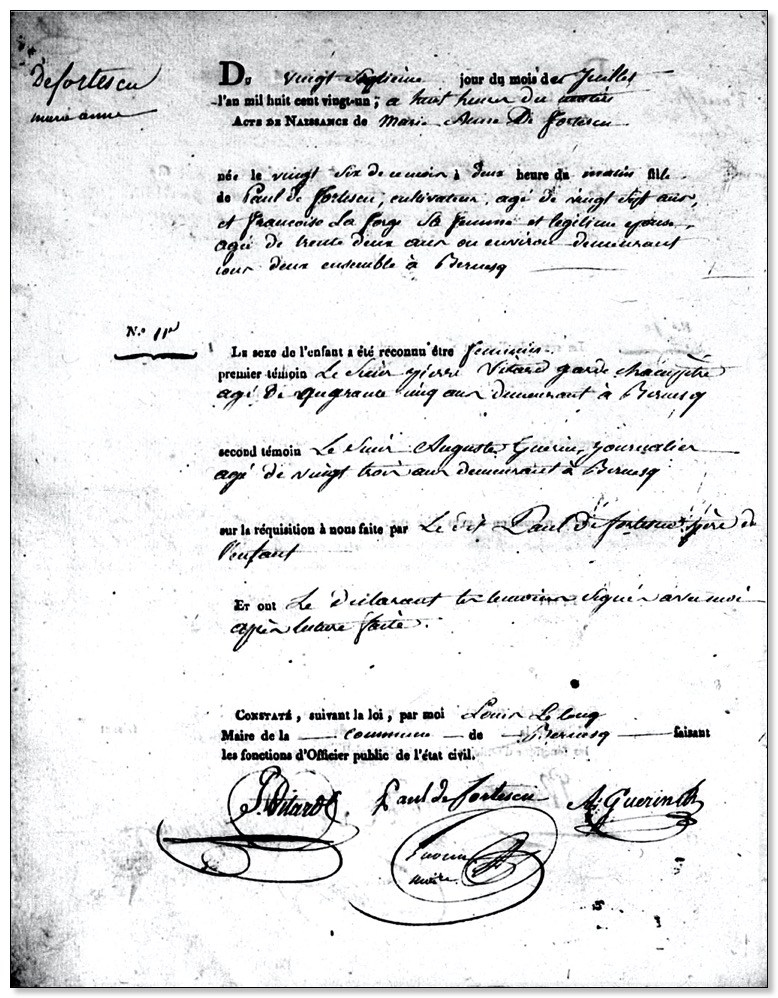 Defortescu
marie anne
Du vingt septieme jour du mois de Juillet
l'an mil huit cent vingt-un ; a huit heures du matin
Acte de Naissance de Marie Anne De fortescu
née le vingt six de ce mois à deux heure du matin fille
de Paul de fortescu, cultivateur, agé de vingt sept ans,
et francoise La forge Sa femme et legitime epouse,
agée de trente deux ans ou environ demeurant
tous deux ensemble à Bernesq
N.º 11
Le sexe de l'enfant a été reconnu être feminin.
premier témoin Le Sieur pierre Vitard garde champêtre
agé de quarante cinq ans demeurant à Bernesq
second témoin Le Sieur Auguste Guerin, journalier
agé de vingt trois ans demeurant à Bernesq
sur la réquisition à nous faite par Le dit Paul de fortescu père de
l'enfant
Et ont Le déclarant et temoins signé avec moi
après lecture faite.
Constaté, suivant la loi, par moi Louis Le
Maire de la commune de Bernesq faisant
les fonctions d'Officier public de l'état civil.
P. Vitard Paul de fortescu A. Guerin
maire